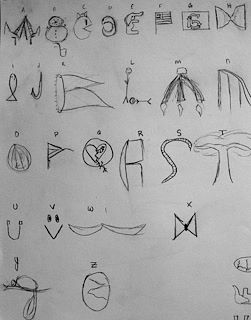 A B C D E F G H
I J K L M n
O P Q R S T
U V W X
y Z